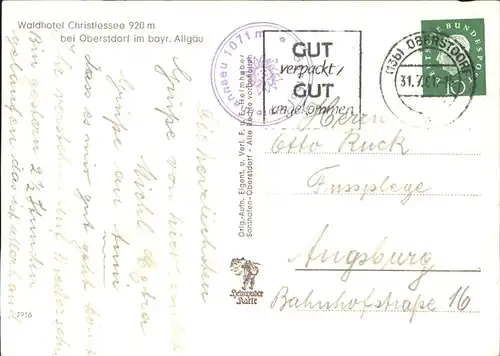 Waldhotel Christlessee 920 m
bei Oberstdorf im bayr. Allgäu
1071 m
GUT
verpackt,
GUT
angekommen
(13b) OBERSTDORF
DEUTSCHE BUNDESPOST
10
Herrn
Otto Ruck
Fusspflege
Augsburg
Bahnhofstraße 16
Die herzlichsten
Grüße von hier sendet
dass es mir gut geht
Grüße an
Bin gestern 2½ Stunden
gelaufen das ist allerhand
Orig.-Aufn. Eigent. u. Verl. F. u. E. Heimhuber
Sonthofen-Oberstdorf - Alle Rechte vorbehalten
Heimhuber
Karte
7916